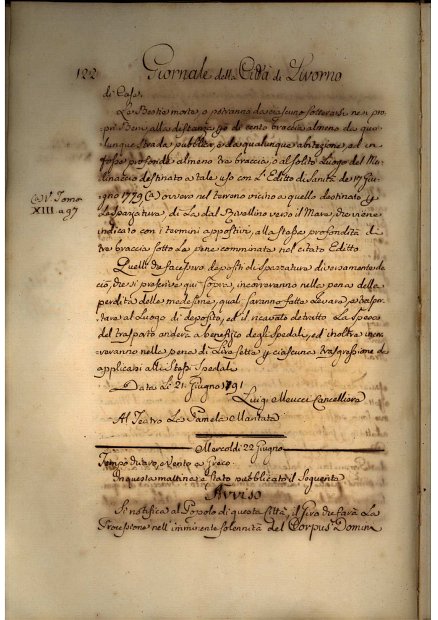 122 Giornale della Città di Livorno
di Casa.
Le Bestie morte, o potranno da ciascuno sotterarsi nei pro-
prj Beni, alla distanza però di cento braccia almeno da qua-
lunque strada pubblica, e da qualunque abitazione, ed in
fosse profonde almeno tre braccia, o al solito Luogo del Mo-
linaccio destinato a tale uso con L'Editto di Sanità de 17 Giu-
gno 1779 (a) ovvero nel terreno vicino a quello destinato per
(a) V. Tomo
XIII a 97
La Spazzatura, di La dal Rivellino verso il Mare, che viene
indicato con i termini appostivi, alla stessa profondità di
tre braccia sotto La pene comminata nel citato Editto.
Quelli da facessero depositi di Spazzatura diversamente da
ciò, che si prescrive qui sopra, incorreranno nella pena della
perdita delle medesime, quali saranno fatte Levare, e traspor-
tare al Luogo di deposito, ed il ricavato detratto La Spesa
del trasporto anderà a benefizio degli Spedali, ed inoltre incor-
reranno nella pena di Lire sette per ciascuna trasgressione da
applicarsi alli stessi Spedali
Data Li 21. Giugno 1791
Luigi Meucci Cancelliere
Al Teatro La Pamela Maritata
Mercoldi 22 Giugno
Tempo chiaro, e Vento a Greco.
In questa mattina è stato pubblicato il Seguente
Avviso
Si notifica al Popolo di questa Città, il Giro che farà La
Processione nell'imminente solennità del Corpus Domini